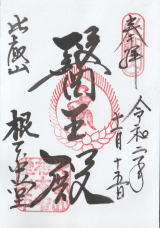 奉拝
令和二年
十一月十五日
醫王殿
比叡山
根本中堂